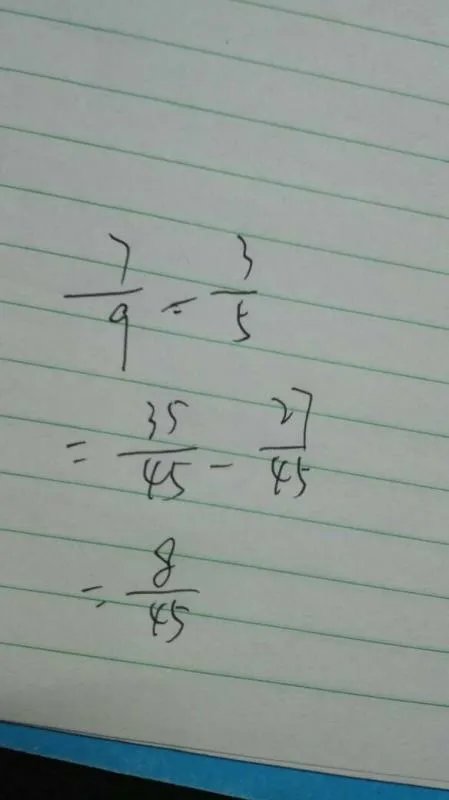 7/9 - 3/5
= 35/45 - 27/45
= 8/45